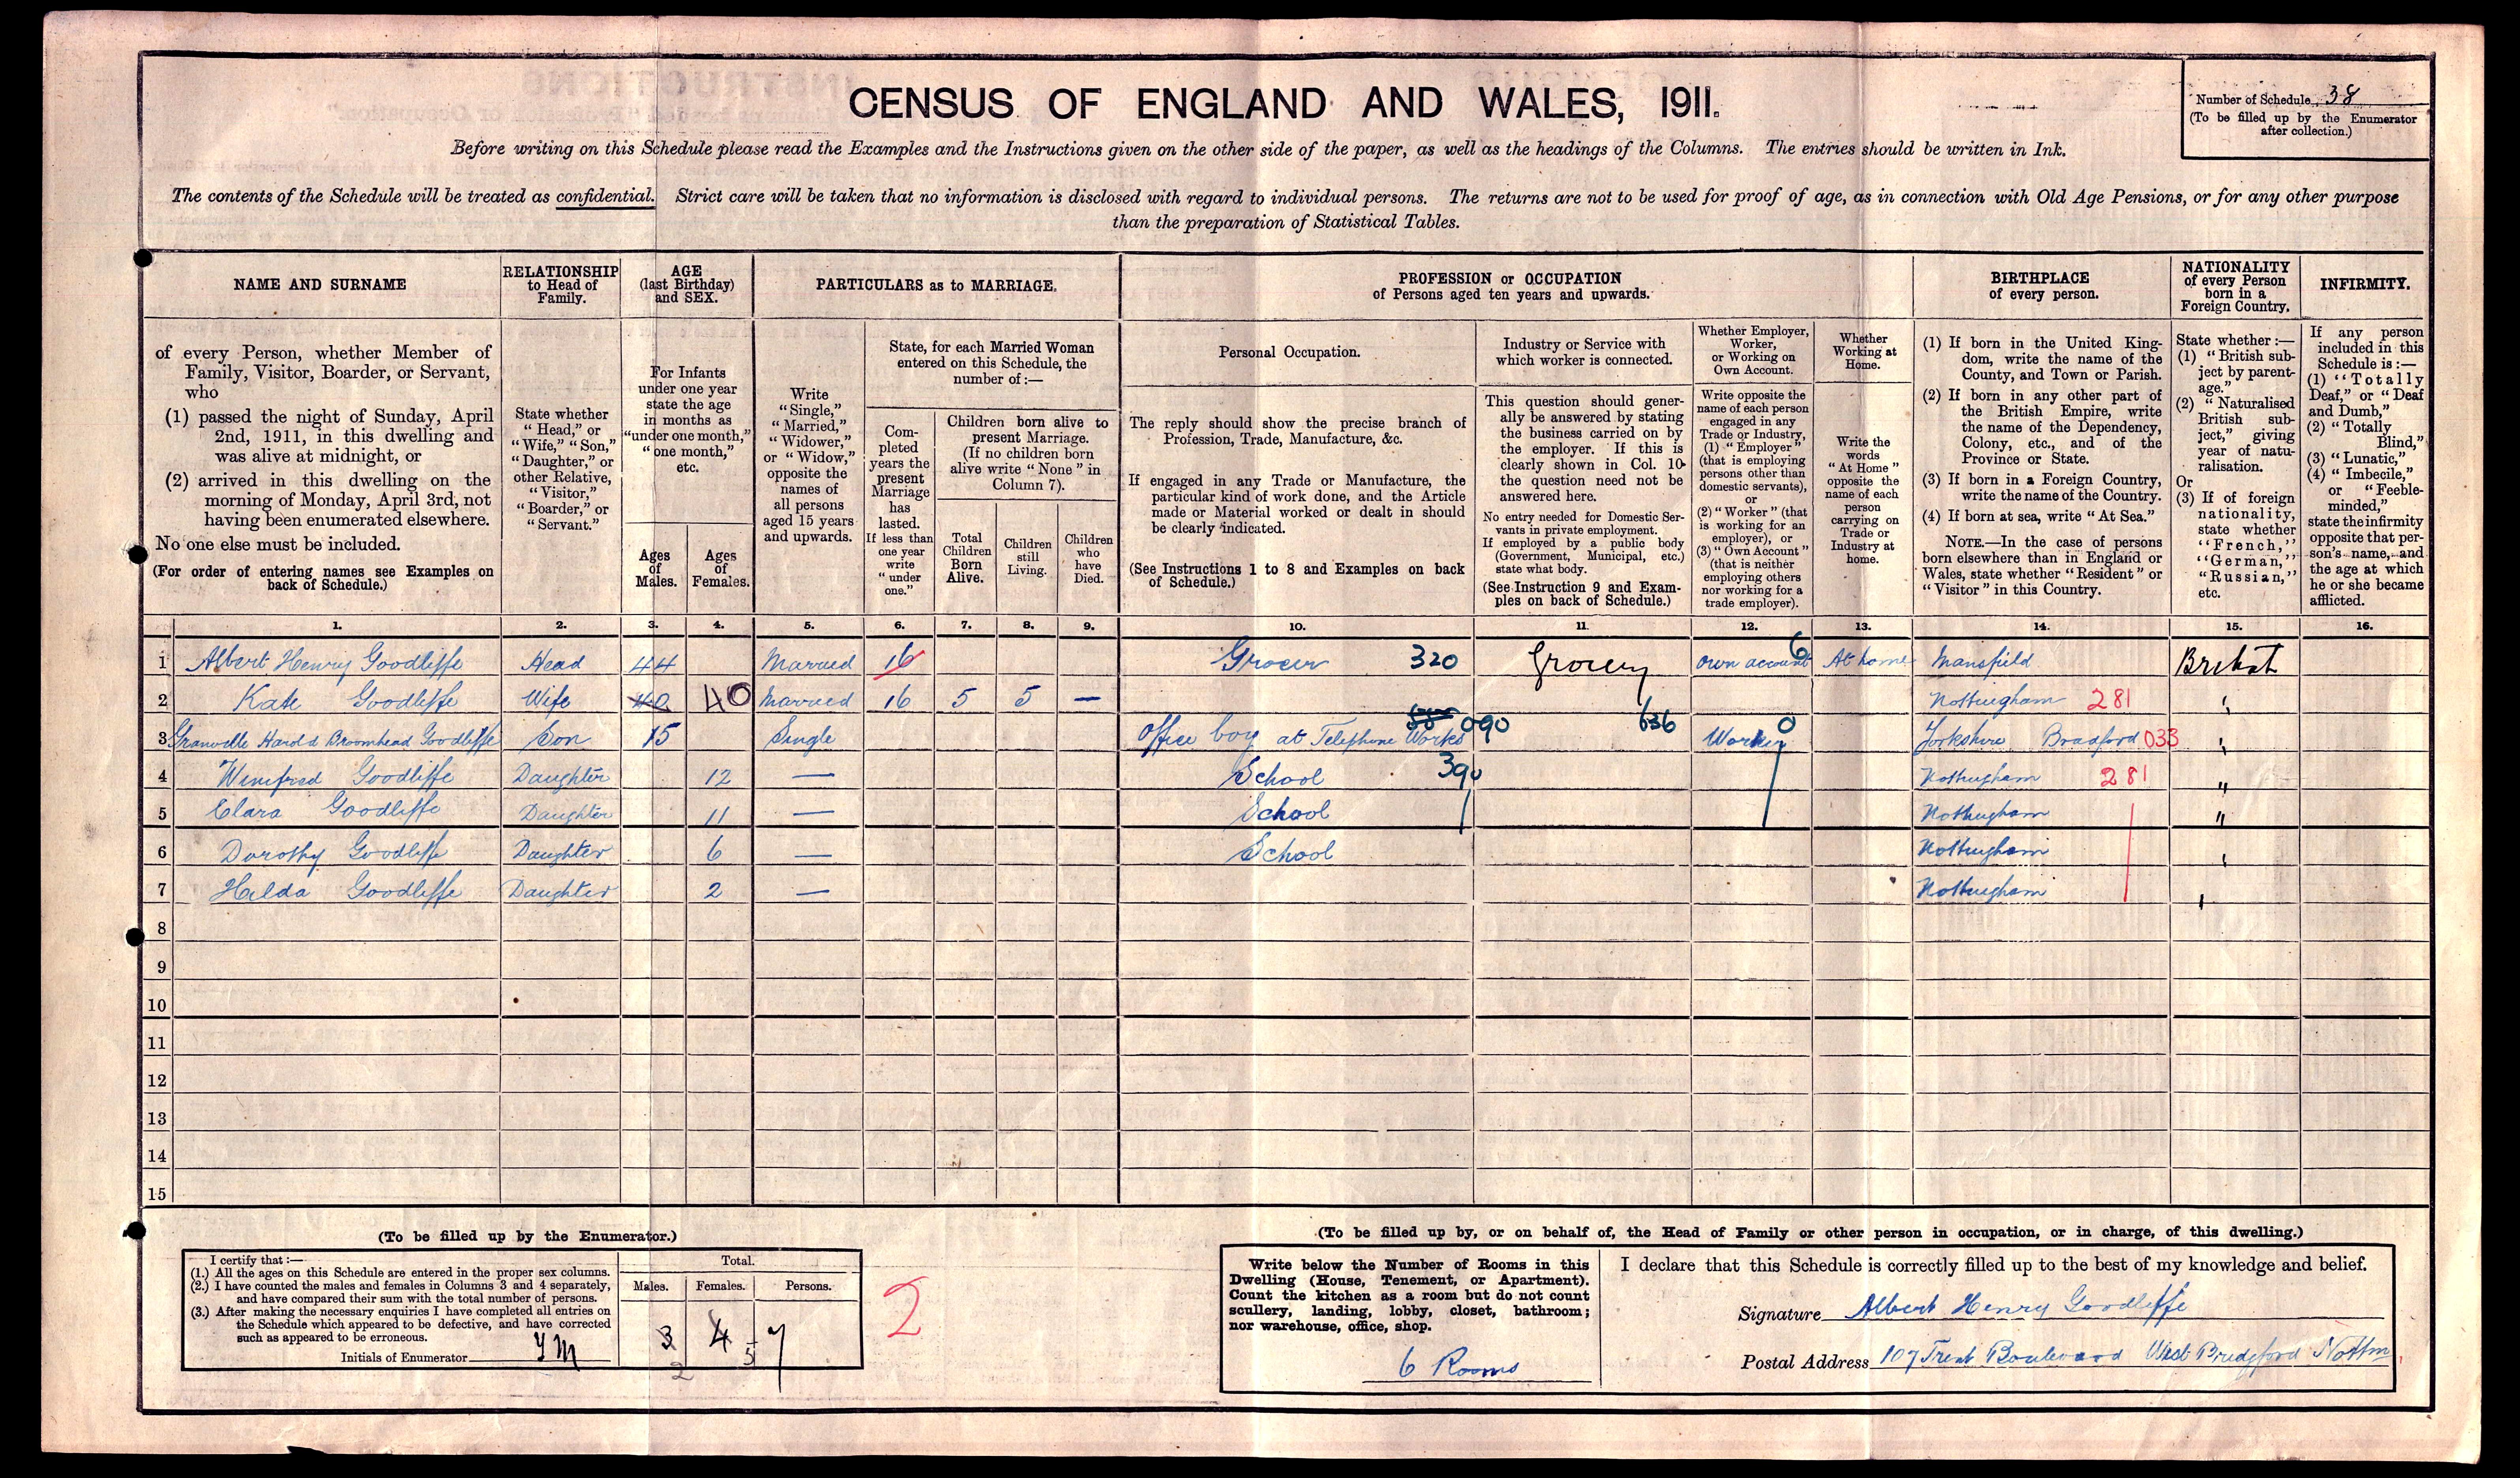 CENSUS OF ENGLAND AND WALES, 1911.
Number of Schedule 38
(To be filled up by the Enumerator after collection.)
Before writing on this Schedule please read the Examples and the Instructions given on the other side of the paper, as well as the headings of the Columns. The entries should be written in Ink.
The contents of the Schedule will be treated as confidential. Strict care will be taken that no information is disclosed with regard to individual persons. The returns are not to be used for proof of age, as in connection with Old Age Pensions, or for any other purpose
than the preparation of Statistical Tables.
NAME AND SURNAME
RELATIONSHIP to Head of Family.
AGE (last Birthday) and SEX.
PARTICULARS as to MARRIAGE.
PROFESSION or OCCUPATION of Persons aged ten years and upwards.
BIRTHPLACE of every person.
NATIONALITY of every Person born in a Foreign Country.
INFIRMITY.
of every Person, whether Member of Family, Visitor, Boarder, or Servant, who
(1) passed the night of Sunday, April 2nd, 1911, in this dwelling and was alive at midnight, or
(2) arrived in this dwelling on the morning of Monday, April 3rd, not having been enumerated elsewhere.
No one else must be included.
(For order of entering names see Examples on back of Schedule.)
State whether "Head," or "Wife," "Son," "Daughter," or other Relative, "Visitor," "Boarder," or "Servant."
For Infants under one year state the age in months as "under one month," "one month," etc.
Ages of Males.
Ages of Females.
Write "Single," "Married," "Widower," or "Widow," opposite the names of all persons aged 15 years and upwards.
State, for each Married Woman entered on this Schedule, the number of:—
Completed years the present Marriage has lasted. If less than one year write "under one."
Children born alive to present Marriage. (If no children born alive write "None" in Column 7).
Total Children Born Alive.
Children still Living.
Children who have Died.
Personal Occupation.
The reply should show the precise branch of Profession, Trade, Manufacture, &c.
If engaged in any Trade or Manufacture, the particular kind of work done, and the Article made or Material worked or dealt in should be clearly indicated.
(See Instructions 1 to 8 and Examples on back of Schedule.)
Industry or Service with which worker is connected.
This question should generally be answered by stating the business carried on by the employer. If this is clearly shown in Col. 10 the question need not be answered here.
No entry needed for Domestic Servants in private employment. If employed by a public body (Government, Municipal, etc.) state what body.
(See Instruction 9 and Examples on back of Schedule.)
Whether Employer, Worker, or Working on Own Account.
Write opposite the name of each person engaged in any Trade or Industry, (1) "Employer" (that is employing persons other than domestic servants), or (2) "Worker" (that is working for an employer), or (3) "Own Account" (that is neither employing others nor working for a trade employer).
Whether Working at Home.
Write the words "At Home" opposite the name of each person carrying on Trade or Industry at home.
(1) If born in the United Kingdom, write the name of the County, and Town or Parish.
(2) If born in any other part of the British Empire, write the name of the Dependency, Colony, etc., and of the Province or State.
(3) If born in a Foreign Country, write the name of the Country.
(4) If born at sea, write "At Sea."
NOTE.—In the case of persons born elsewhere than in England or Wales, state whether "Resident" or "Visitor" in this Country.
State whether:— (1) "British subject by parentage." (2) "Naturalised British subject," giving year of naturalisation. Or (3) If of foreign nationality, state whether "French," "German," "Russian," etc.
If any person included in this Schedule is:— (1) "Totally Deaf," or "Deaf and Dumb," (2) "Totally Blind," (3) "Lunatic," (4) "Imbecile," or "Feeble-minded," state the infirmity opposite that person's name, and the age at which he or she became afflicted.
1. 2. 3. 4. 5. 6. 7. 8. 9. 10. 11. 12. 13. 14. 15. 16.
1 Albert Henry Goodliffe Head 44 Married 16 Grocer 320 Grocery own account 6 At home Mansfield
2 Kate Goodliffe Wife 40 40 Married 16 5 5 — Nottingham 281 "
3 Granville Harold Broomhead Goodliffe Son 15 Single Office boy at Telephone Works 090 636 Worker 0 Yorkshire Bradford 033 "
4 Winifred Goodliffe Daughter 12 — School 390 Nottingham 281 "
5 Clara Goodliffe Daughter 11 — School Nottingham "
6 Dorothy Goodliffe Daughter 6 — School Nottingham "
7 Hilda Goodliffe Daughter 2 — Nottingham "
8
9
10
11
12
13
14
15
(To be filled up by the Enumerator.)
I certify that:—
(1.) All the ages on this Schedule are entered in the proper sex columns.
(2.) I have counted the males and females in Columns 3 and 4 separately, and have compared their sum with the total number of persons.
(3.) After making the necessary enquiries I have completed all entries on the Schedule which appeared to be defective, and have corrected such as appeared to be erroneous.
Initials of Enumerator
Total.
Males. Females. Persons.
3 4 7
2 5
2
(To be filled up by, or on behalf of, the Head of Family or other person in occupation, or in charge, of this dwelling.)
Write below the Number of Rooms in this Dwelling (House, Tenement, or Apartment). Count the kitchen as a room but do not count scullery, landing, lobby, closet, bathroom; nor warehouse, office, shop.
6 Rooms
I declare that this Schedule is correctly filled up to the best of my knowledge and belief.
Signature Albert Henry Goodliffe
Postal Address 107 Trent Boulevard West Bridgford Nottm